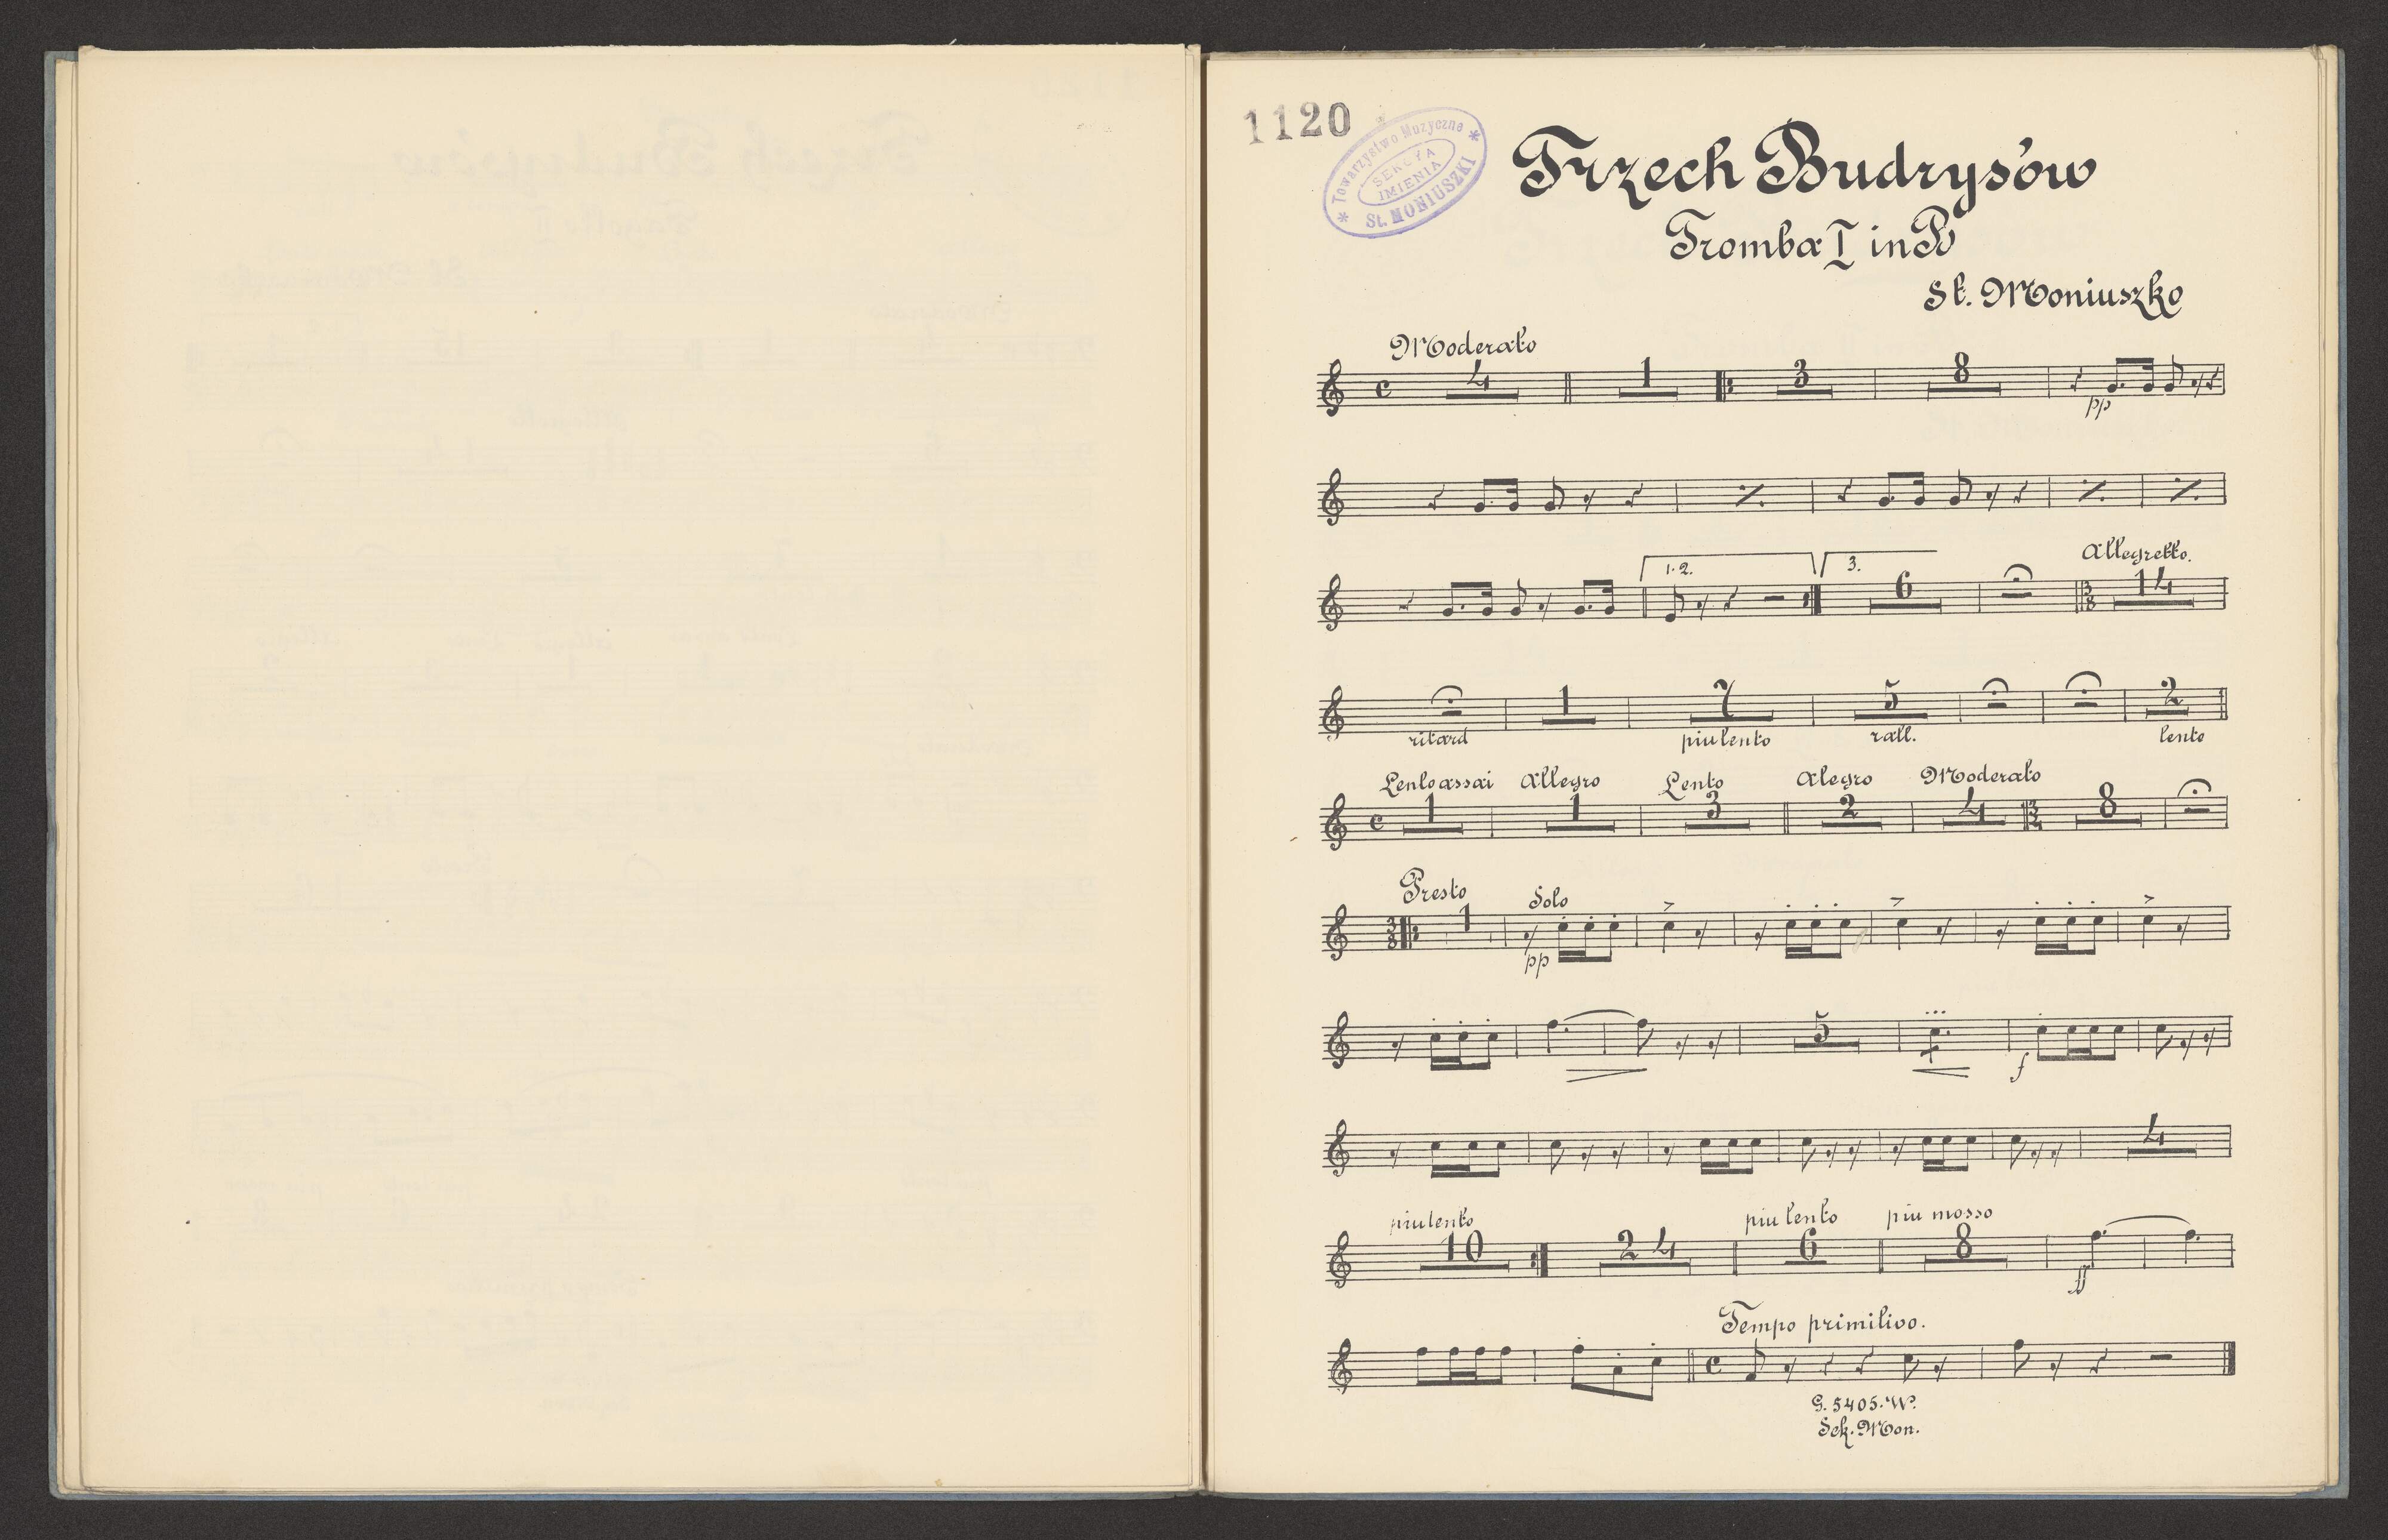 1120
* Towarzystwo Muzyczne *
SEKCYA
IMIENIA
St. MONIUSZKI
Trzech Budrysów
Tromba I in B
St. Moniuszko
Moderato
4 1 3 8
pp
1. 2. 3. 6 Allegretto. 14
1 7 5 2
ritard piu lento rall. lento
Lento assai Allegro Lento Alegro Moderato
1 1 3 2 4 8
Presto Solo
1
pp
5
f
4
piu lento piu lento piu mosso
10 24 6 8
ff
Tempo primitivo.
G. 5405. W.
Sek. Mon.